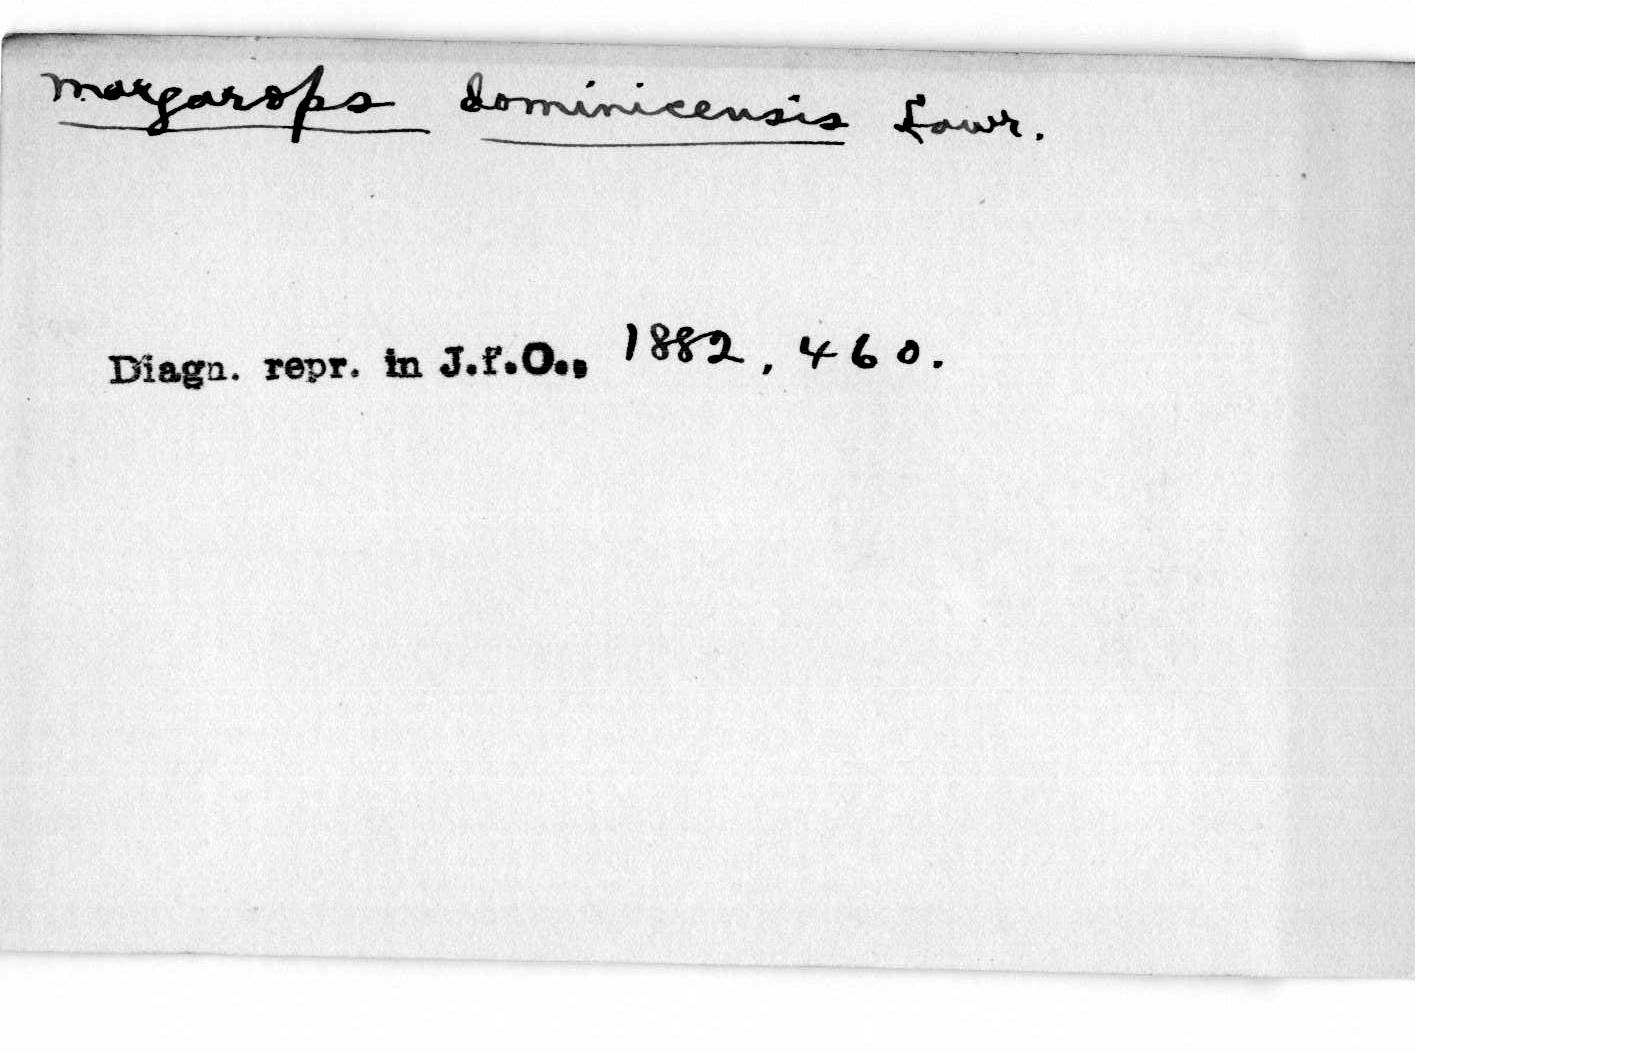 Margarops dominicensis Lawr.
Diagn. repr. in J.f.O., 1882, 460.